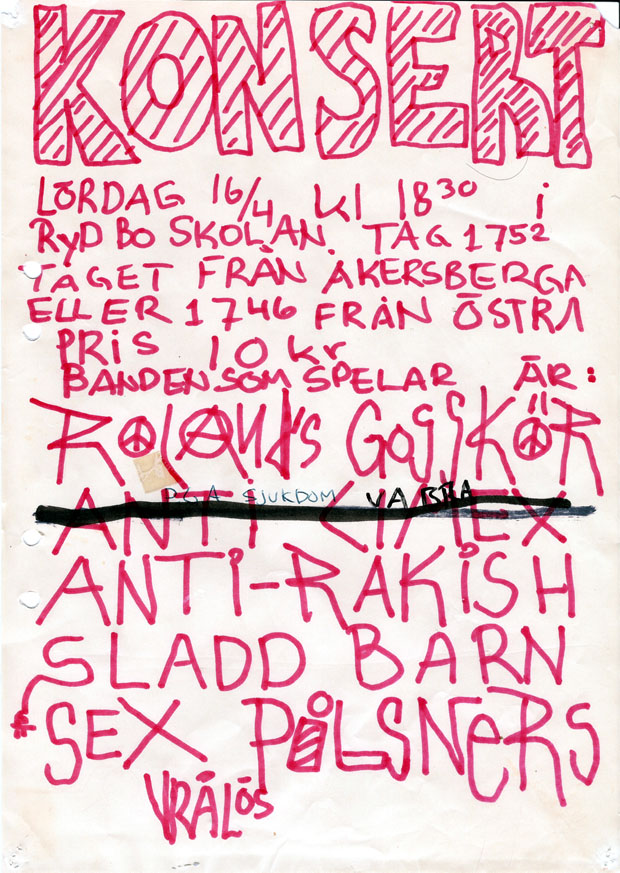 KONSERT
LÖRDAG 16/4 kl 18³⁰ i
RyDBO SKOLAN. TAG 1752
TÅGET FRÅN ÅKERSBERGA
ELLER 1746 FRÅN ÖSTRA
PRiS 10 kr
BANDEN SOM SPELAR ÄR:
ROLANds GOSSKÖR
PGA SJUKDOM VA BRA
ANTI CIMEX
ANTi-RAKiSH
SLADD BARN
SEX PiLSNeRS
VRÅLÖS